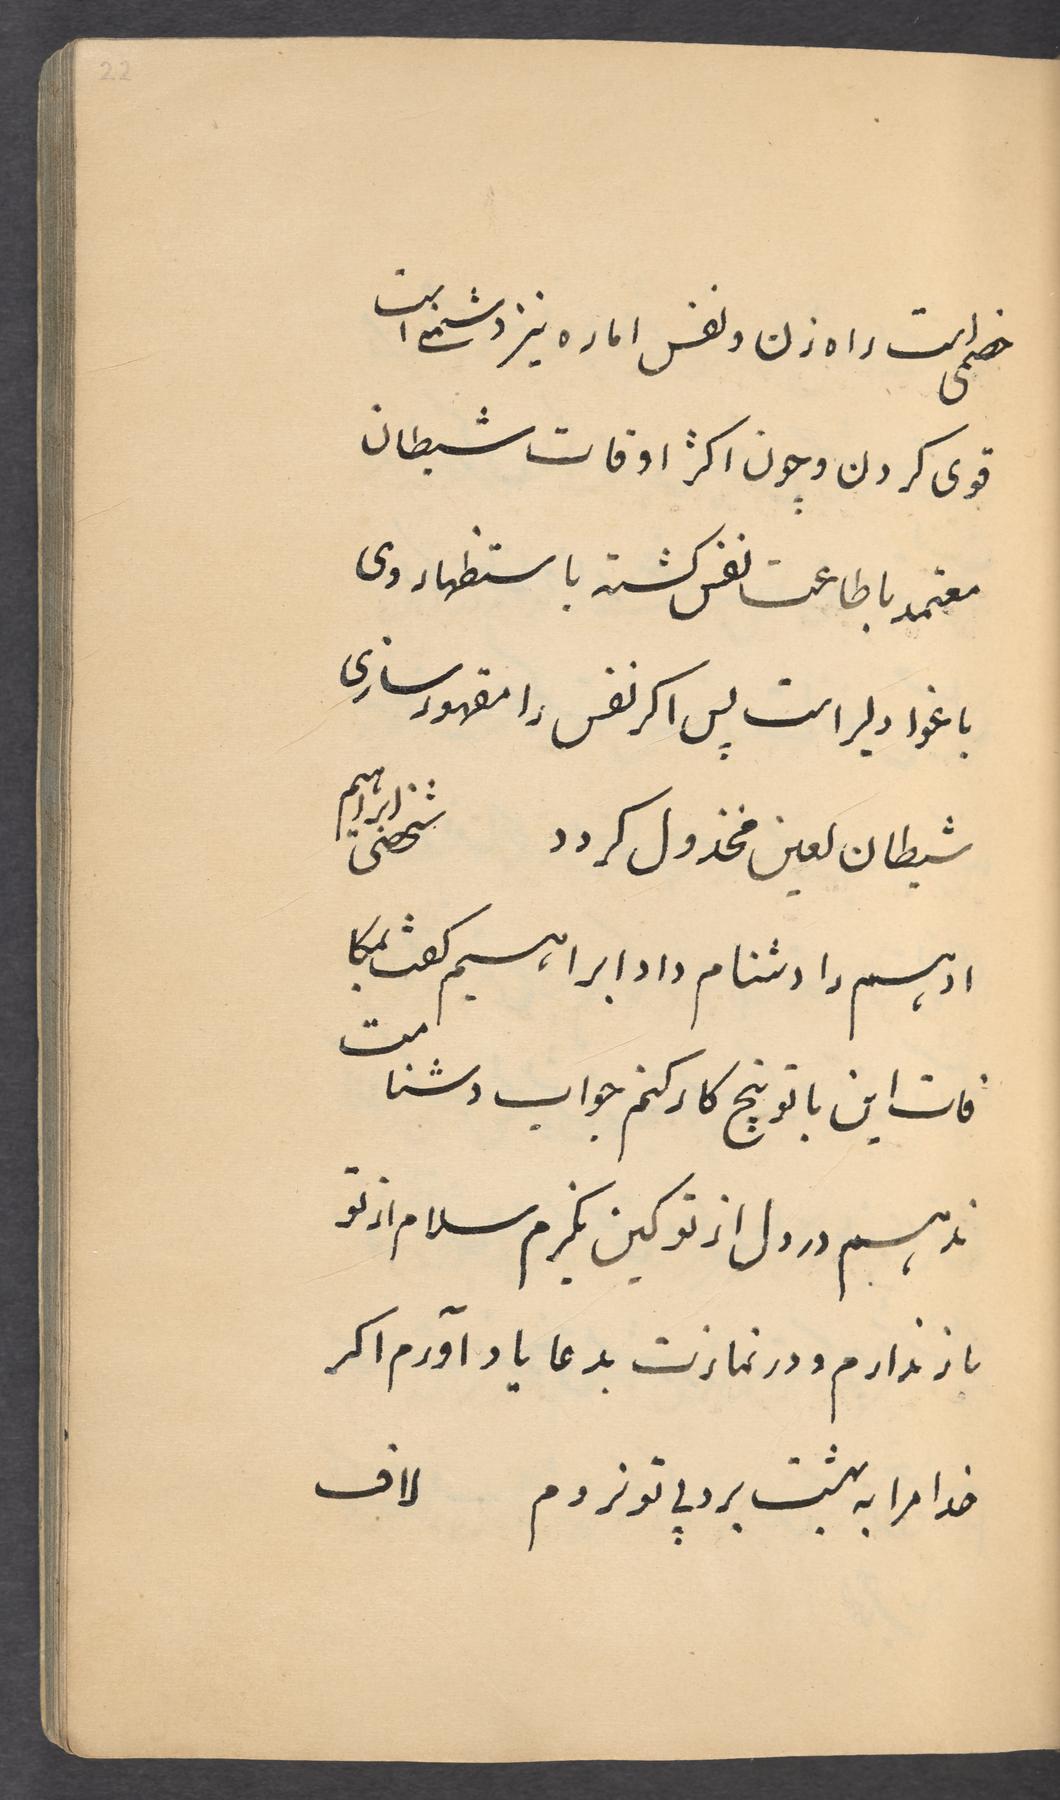 22
خصمی است راه زن و نفس اماره نیز دشمنی است
قوی کردن و چون اکثر اوقات شیطان
معتمد باطاعت نفس کشته باستظهار وی
باغوا دلیر است پس اکر نفس را مقهور سازی
شیطان لعین مخذول کردد شخصی ابراهیم
ادهم را دشنام داد ابراهیم کفت بمکا
فات این با تو پنج کار کنم جواب دشنامت
ندهم در دل از تو کین نکیرم سلام از تو
باز ندارم و در نمازت بدعا یاد آورم اکر
خدا مرا به بهشت برد بی تو نروم لاف